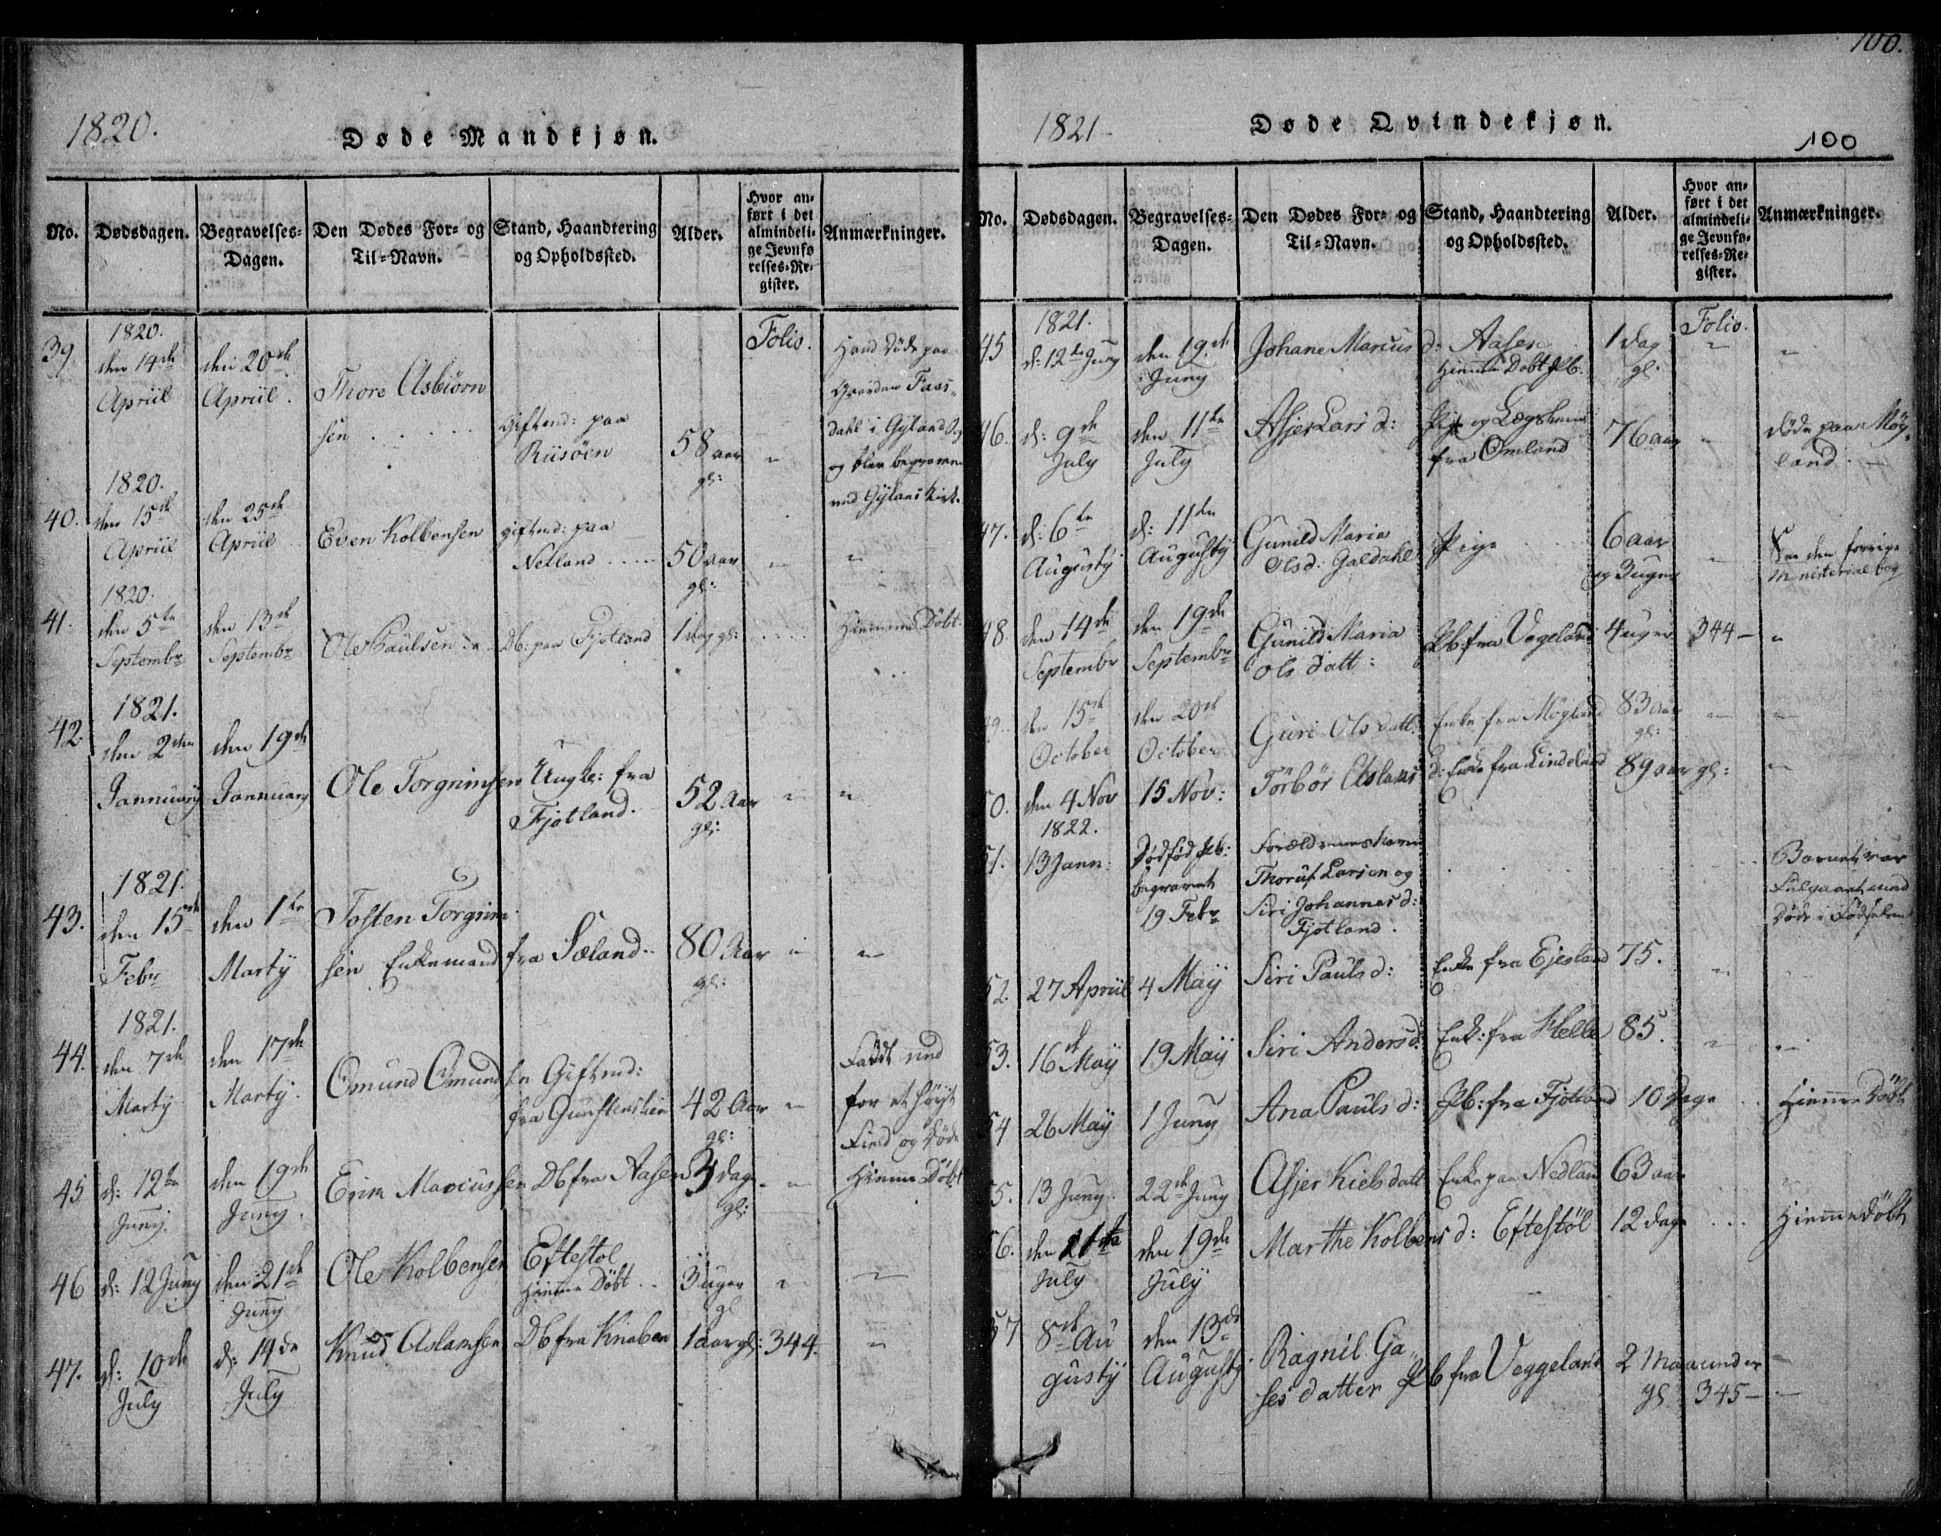 1820.
Døde Mandkjøn.
No. Dødsdagen. Begravelses-Dagen. Den Dødes For- og Til-Navn. Stand, Haandtering og Opholdssted. Alder. Hvor anført i det almindelige Jevnførelses-Register. Anmærkninger.
Folio.
39 1820. den 14de Apriil den 20de Apriil. Thore Asbiørnsen giftmd: paa Riisöen 58 aar gl: " Hand Döde paa Gaarden Faasdahl i Gyland og blev begraven ved Gylans Kirk.
40. 1820. den 15de Apriil den 25de Apriil Even Kolbensen giftmd: paa Netland 50 aar gl: " "
41. 1820. den 5te Septembr den 13de Septembr Ole Paulsen Db: paa Fjotland 1 dag gl: Hiemme Döbt
42. 1821. den 2den Jannuary den 19de Jannuary Ole Torgrimsen Ungk: fra Fjotland. 52 Aar gl: " "
43. 1821. den 15de Febr den 1te Marty Tosten Torgrimsen Enkemand fra Sæland 80 Aar gl: " "
44. 1821. den 7de Marty den 17de Marty. Omund Omundsen Giftmd: fra 42 Aar gl: " Faldt ud for et höyt Field og Döde
45 d: 12te Juny. den 19de Juny. Marcussen Db fra Aasen 3 dage gl: " Hiemme Döbt
46 d: 12 Juny den 21de Juny Ole Kolbensen Eftestöl Hiemme Döbt 3 uger gl " "
47. d: 10de July d: 14de July Knud Aslamsen Db fra Knaben 1 aar gl: 344. "
100.
1821
Døde Qvindekjøn.
100
No. Dødsdagen. Begravelses-Dagen. Den Dødes For- og Til-Navn. Stand, Haandtering og Opholdssted. Alder. Hvor anført i det almindelige Jevnførelses-Register. Anmærkninger.
Folio.
45 1821. d: 12te Juny den 19de Juny Johane Marcus d: Aasen Hiemme Döbt Pb. 1 dag gl: " "
46. d: 9de July den 11te July Asjer Lars d: Pige og fra Omland 76 aar " döde paa Möyland.
47. d: 6te Augusty d: 11te Augusty Gunild Maria Olsd: Galdahl Pige 6 aar og 3 uger " den forrige Ministerial bog
48 den 14de Septembr den 19de Septembr Gunild Maria Ols datt: Pb fra Vegeland 4 uger 344 "
49. den 15de October den 20de October Guri Ols datt: Enke fra Mögland 83 aar gl: " "
50. den 4 Nov 15 Nov: Törbör Aslaks d: Enke fra Lindeland 89 aar gl: "
51. 1822. 13 Jann: Dödföd Pb: begravet 19 Febr Forældrenes Navn Thoruf Larsen og Siri Johannes d: Fjotland. Barnet var Fulgaaet Döde i Födselen
52. 27 Apriil 4 Maÿ Siri Pauls d: Enke fra Ejesland 75. "
53. 16de Maÿ 19 Maÿ Siri Anders d: Enk: fra Helle 85. " "
54 26 Maÿ 1 Juny Ana Pauls d: Pb: fra Fjotland 10 Dage Hiemme Döbt
55. 13 Juny. 22de Juny Asjer Kiels datt Enke paa Nedland 63 aar "
56. den 21te July den 19de Julÿ Marthe Kolbens d: Eftestöl 12 dage Hiemme döbt
57 8de Augusty den 13de Augusty. Ragnil Gases datter Pb fra Veggeland 2 Maaneder gl 345